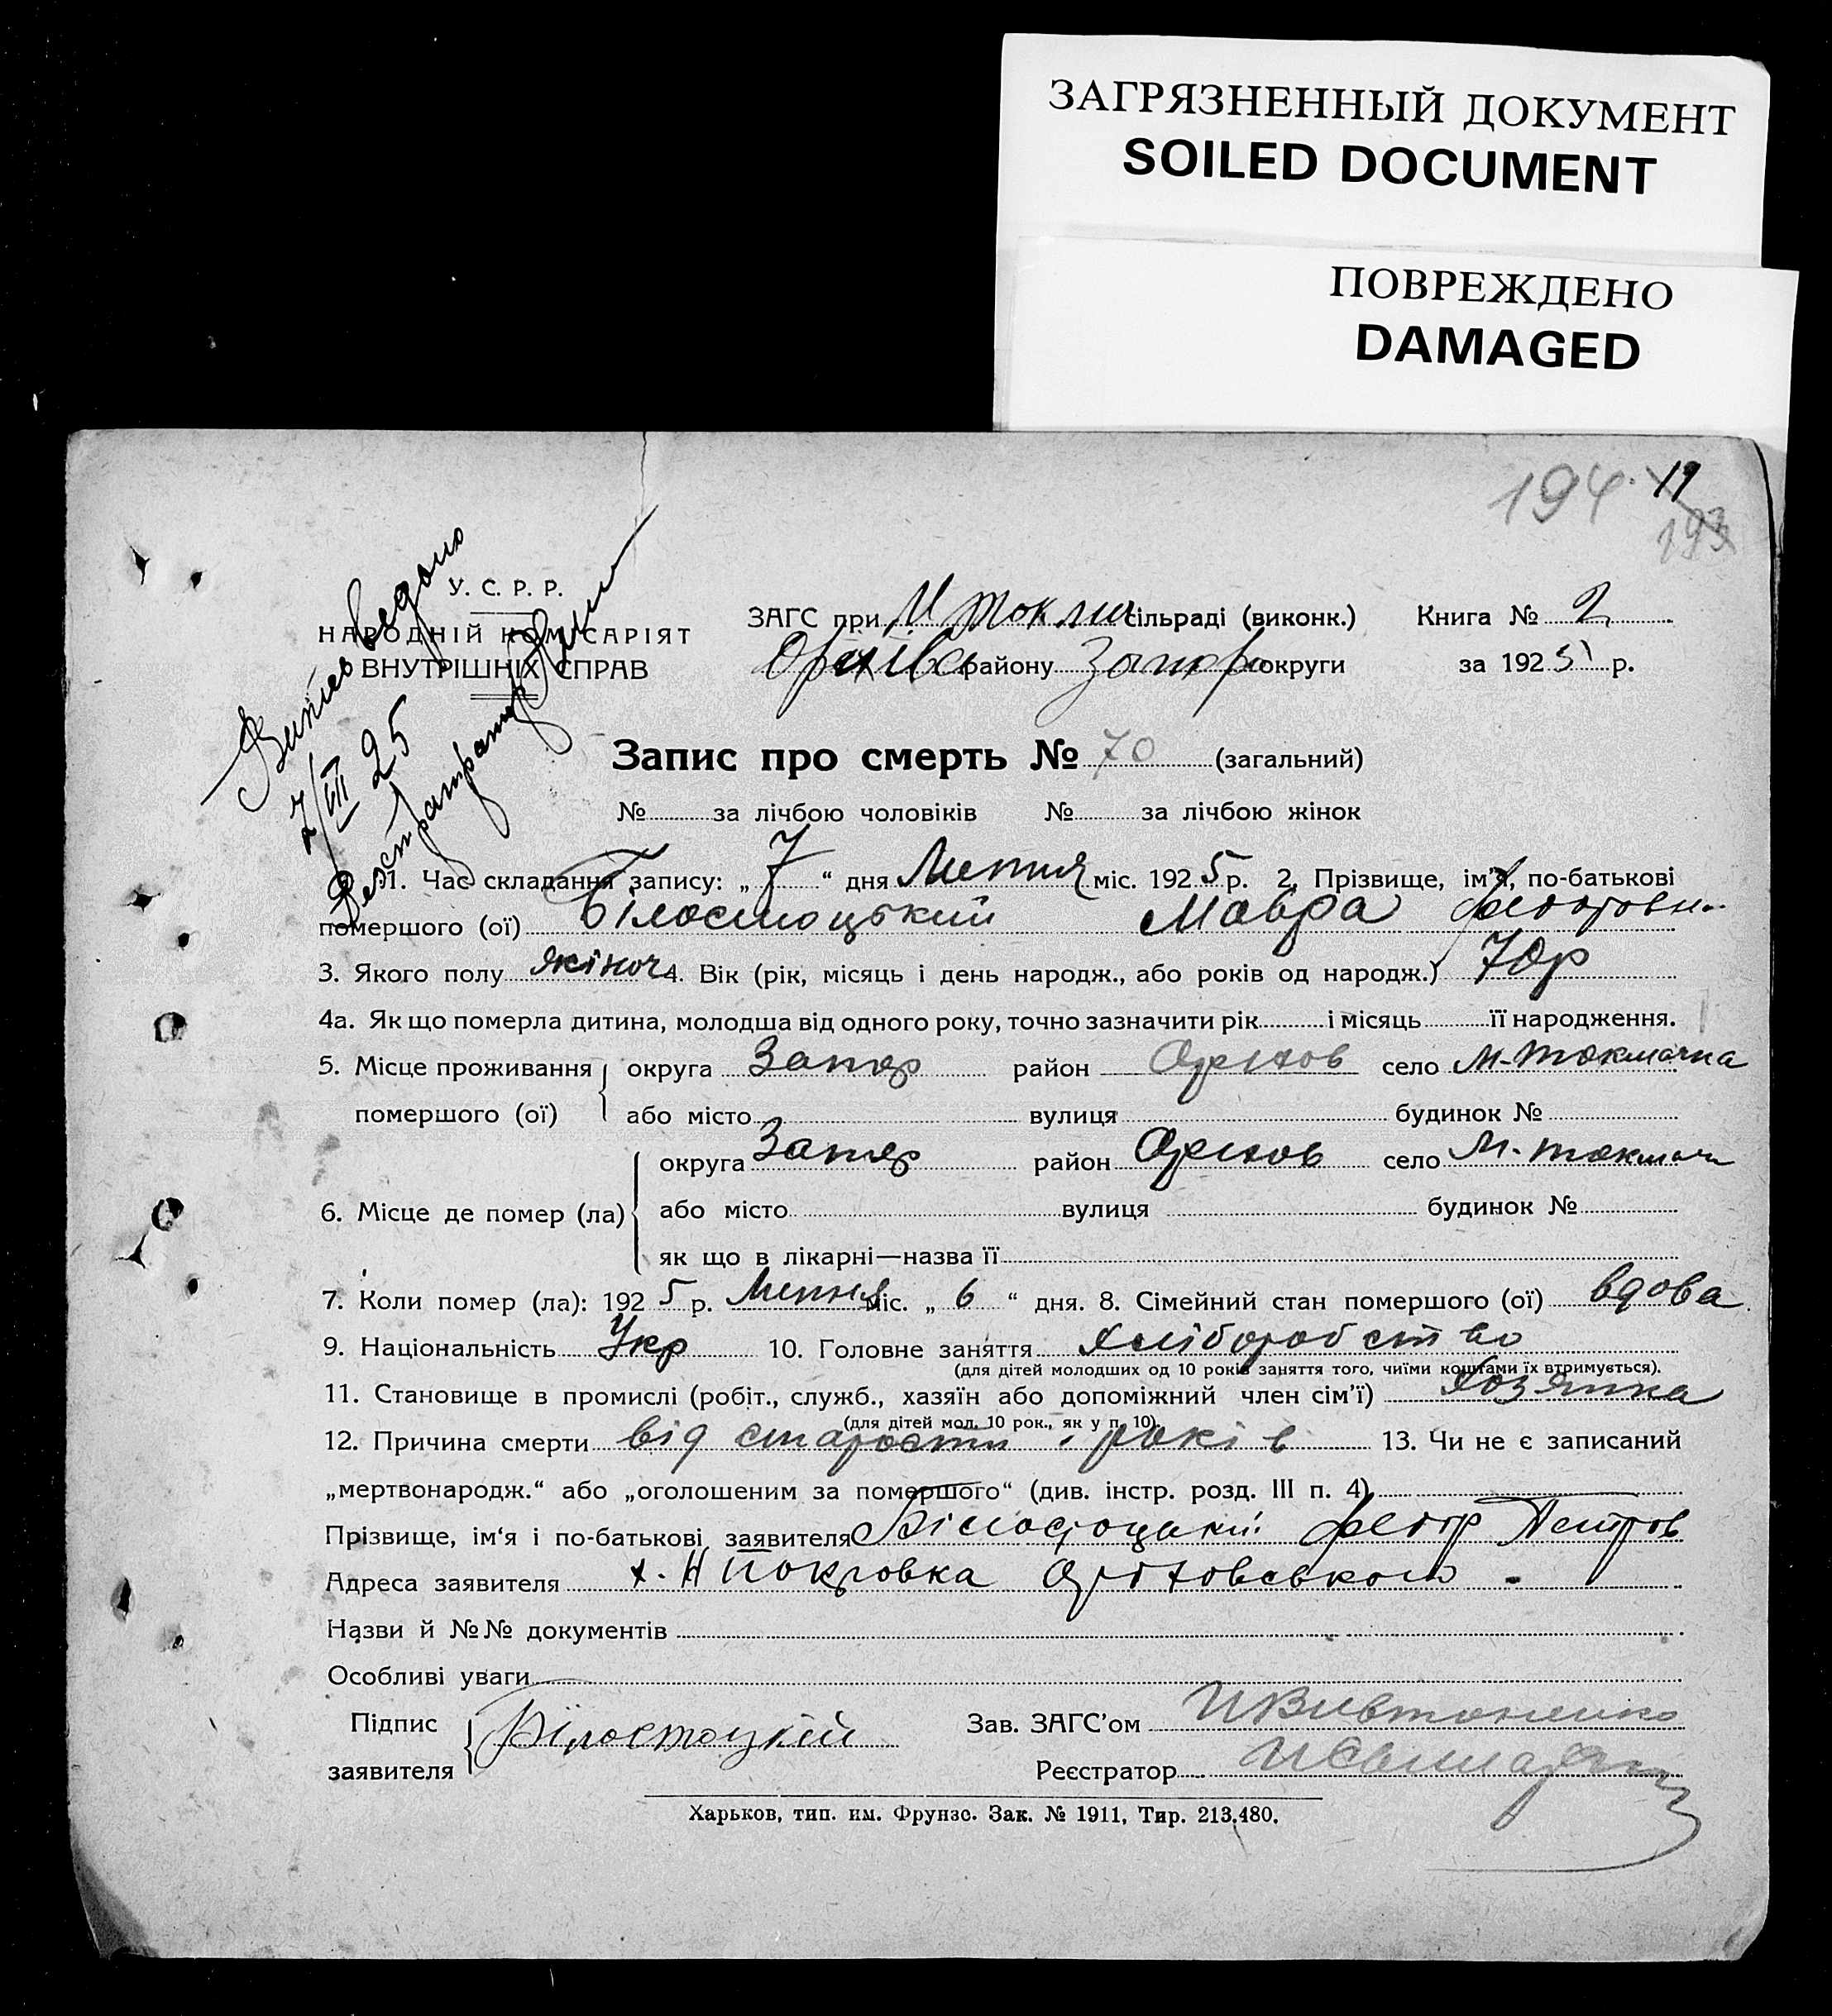 ЗАГРЯЗНЕННЫЙ ДОКУМЕНТ
SOILED DOCUMENT
ПОВРЕЖДЕНО
DAMAGED
194. 19
193
У. С. Р. Р.
НАРОДНІЙ КОМІСАРІЯТ
ВНУТРІШНІХ СПРАВ
7/VII 25
ЗАГС при М Токма сільраді (виконк.) Книга № 2
Оріхівс району Запор округи за 1925 р.
Запис про смерть № 70 (загальний)
№ за лічбою чоловіків № за лічбою жінок
1. Час складання запису: „ 7 “ дня Липня міс. 1925 р. 2. Прізвище, ім'я, по-батькові
помершого (ої) Білостоцький Мавра Федоровн
3. Якого полу жіноч 4. Вік (рік, місяць і день народж., або років од народж.) 70р
4а. Як що померла дитина, молодша від одного року, точно зазначити рік і місяць її народження.
5. Місце проживання округа Запор район Орехов село М-Токмачка
помершого (ої) або місто вулиця будинок №
округа Запор район Орехов село М-Токмачк
6. Місце де помер (ла) або місто вулиця будинок №
як що в лікарні—назва її
7. Коли помер (ла): 1925 р. Липня міс. „ 6 “ дня. 8. Сімейний стан помершого (ої) вдова
9. Національність Укр 10. Головне заняття хліборобство
(для дітей молодших од 10 років заняття того, чиїми коштами їх втримується).
11. Становище в промислі (робіт., служб., хазяїн або допоміжний член сім'ї) хозяйка
(для дітей мол. 10 рок., як у п. 10).
12. Причина смерти від старости років 13. Чи не є записаний
„мертвонародж.“ або „оголошеним за помершого“ (див. інстр. розд. III п. 4)
Прізвище, ім'я і по-батькові заявителя Білостоцький Федор Петров
Адреса заявителя х. Н Покровка Оріховського
Назви й №№ документів
Особливі уваги
Підпис Білостоцкій Зав. ЗАГС'ом
заявителя Реєстратор
Харьков, тип. им. Фрунзе. Зак. № 1911, Тир. 213.480.